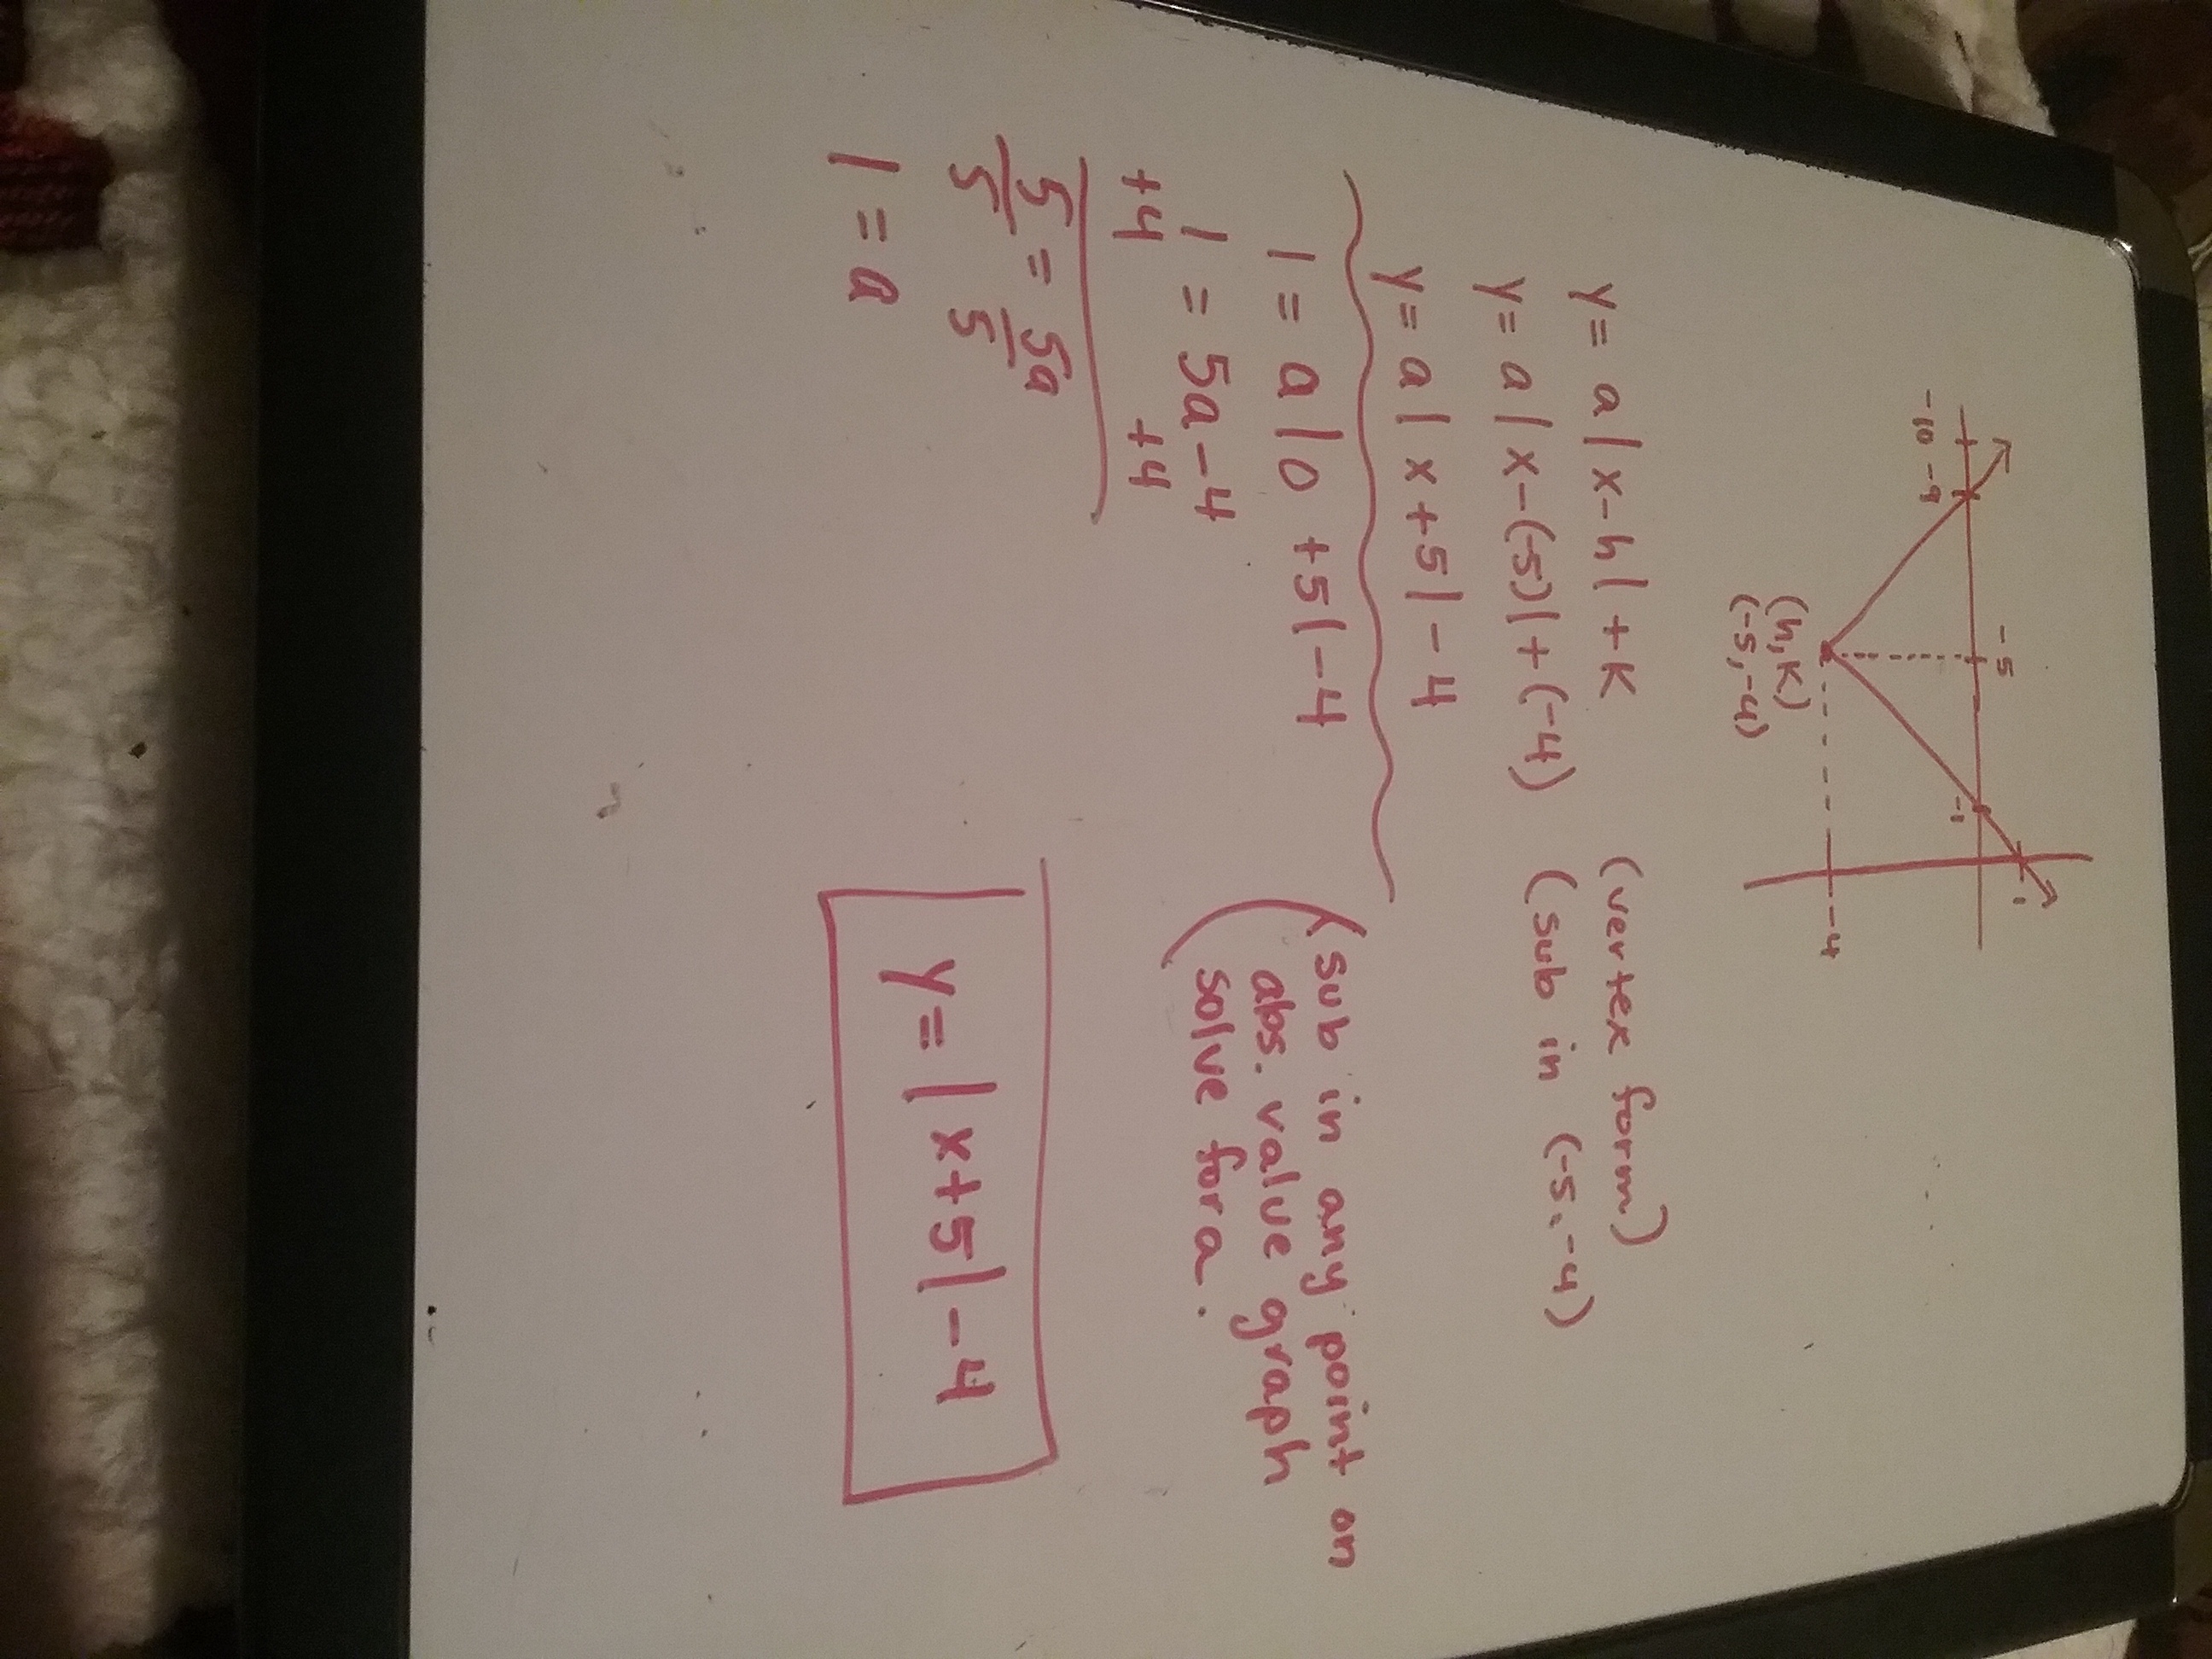 -5
-10 -9 -1 1
(h,K)
(-5,-4)
-4
y = a|x-h|+K (vertex form)
y = a|x-(-5)|+(-4) (sub in (-5,-4)
y = a|x+5|-4
1 = a|0 +5|-4 (sub in any point on
abs. value graph
1 = 5a-4 solve for a.
+4 +4
5 = 5a
5 5
1 = a
y = |x+5|-4